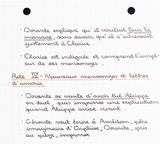 - Dorante explique qu'il voulait fuir le
mariage, sans savoir qu'il s'adressait
justement à Clarice
- Clarice est indignée et comprend l'ampleur
de ses mensonges.
Acte IV - Nouveaux mensonges et lettres
d'amour
- Dorante se vante d'avoir tué Alcippe
en duel, puis improvise une explication
quand Alcippe arrive vivant.
- Géronte veut écrire à Armédon, père
imaginaire d'Orphise; Dorante, pris
au piège, improvise